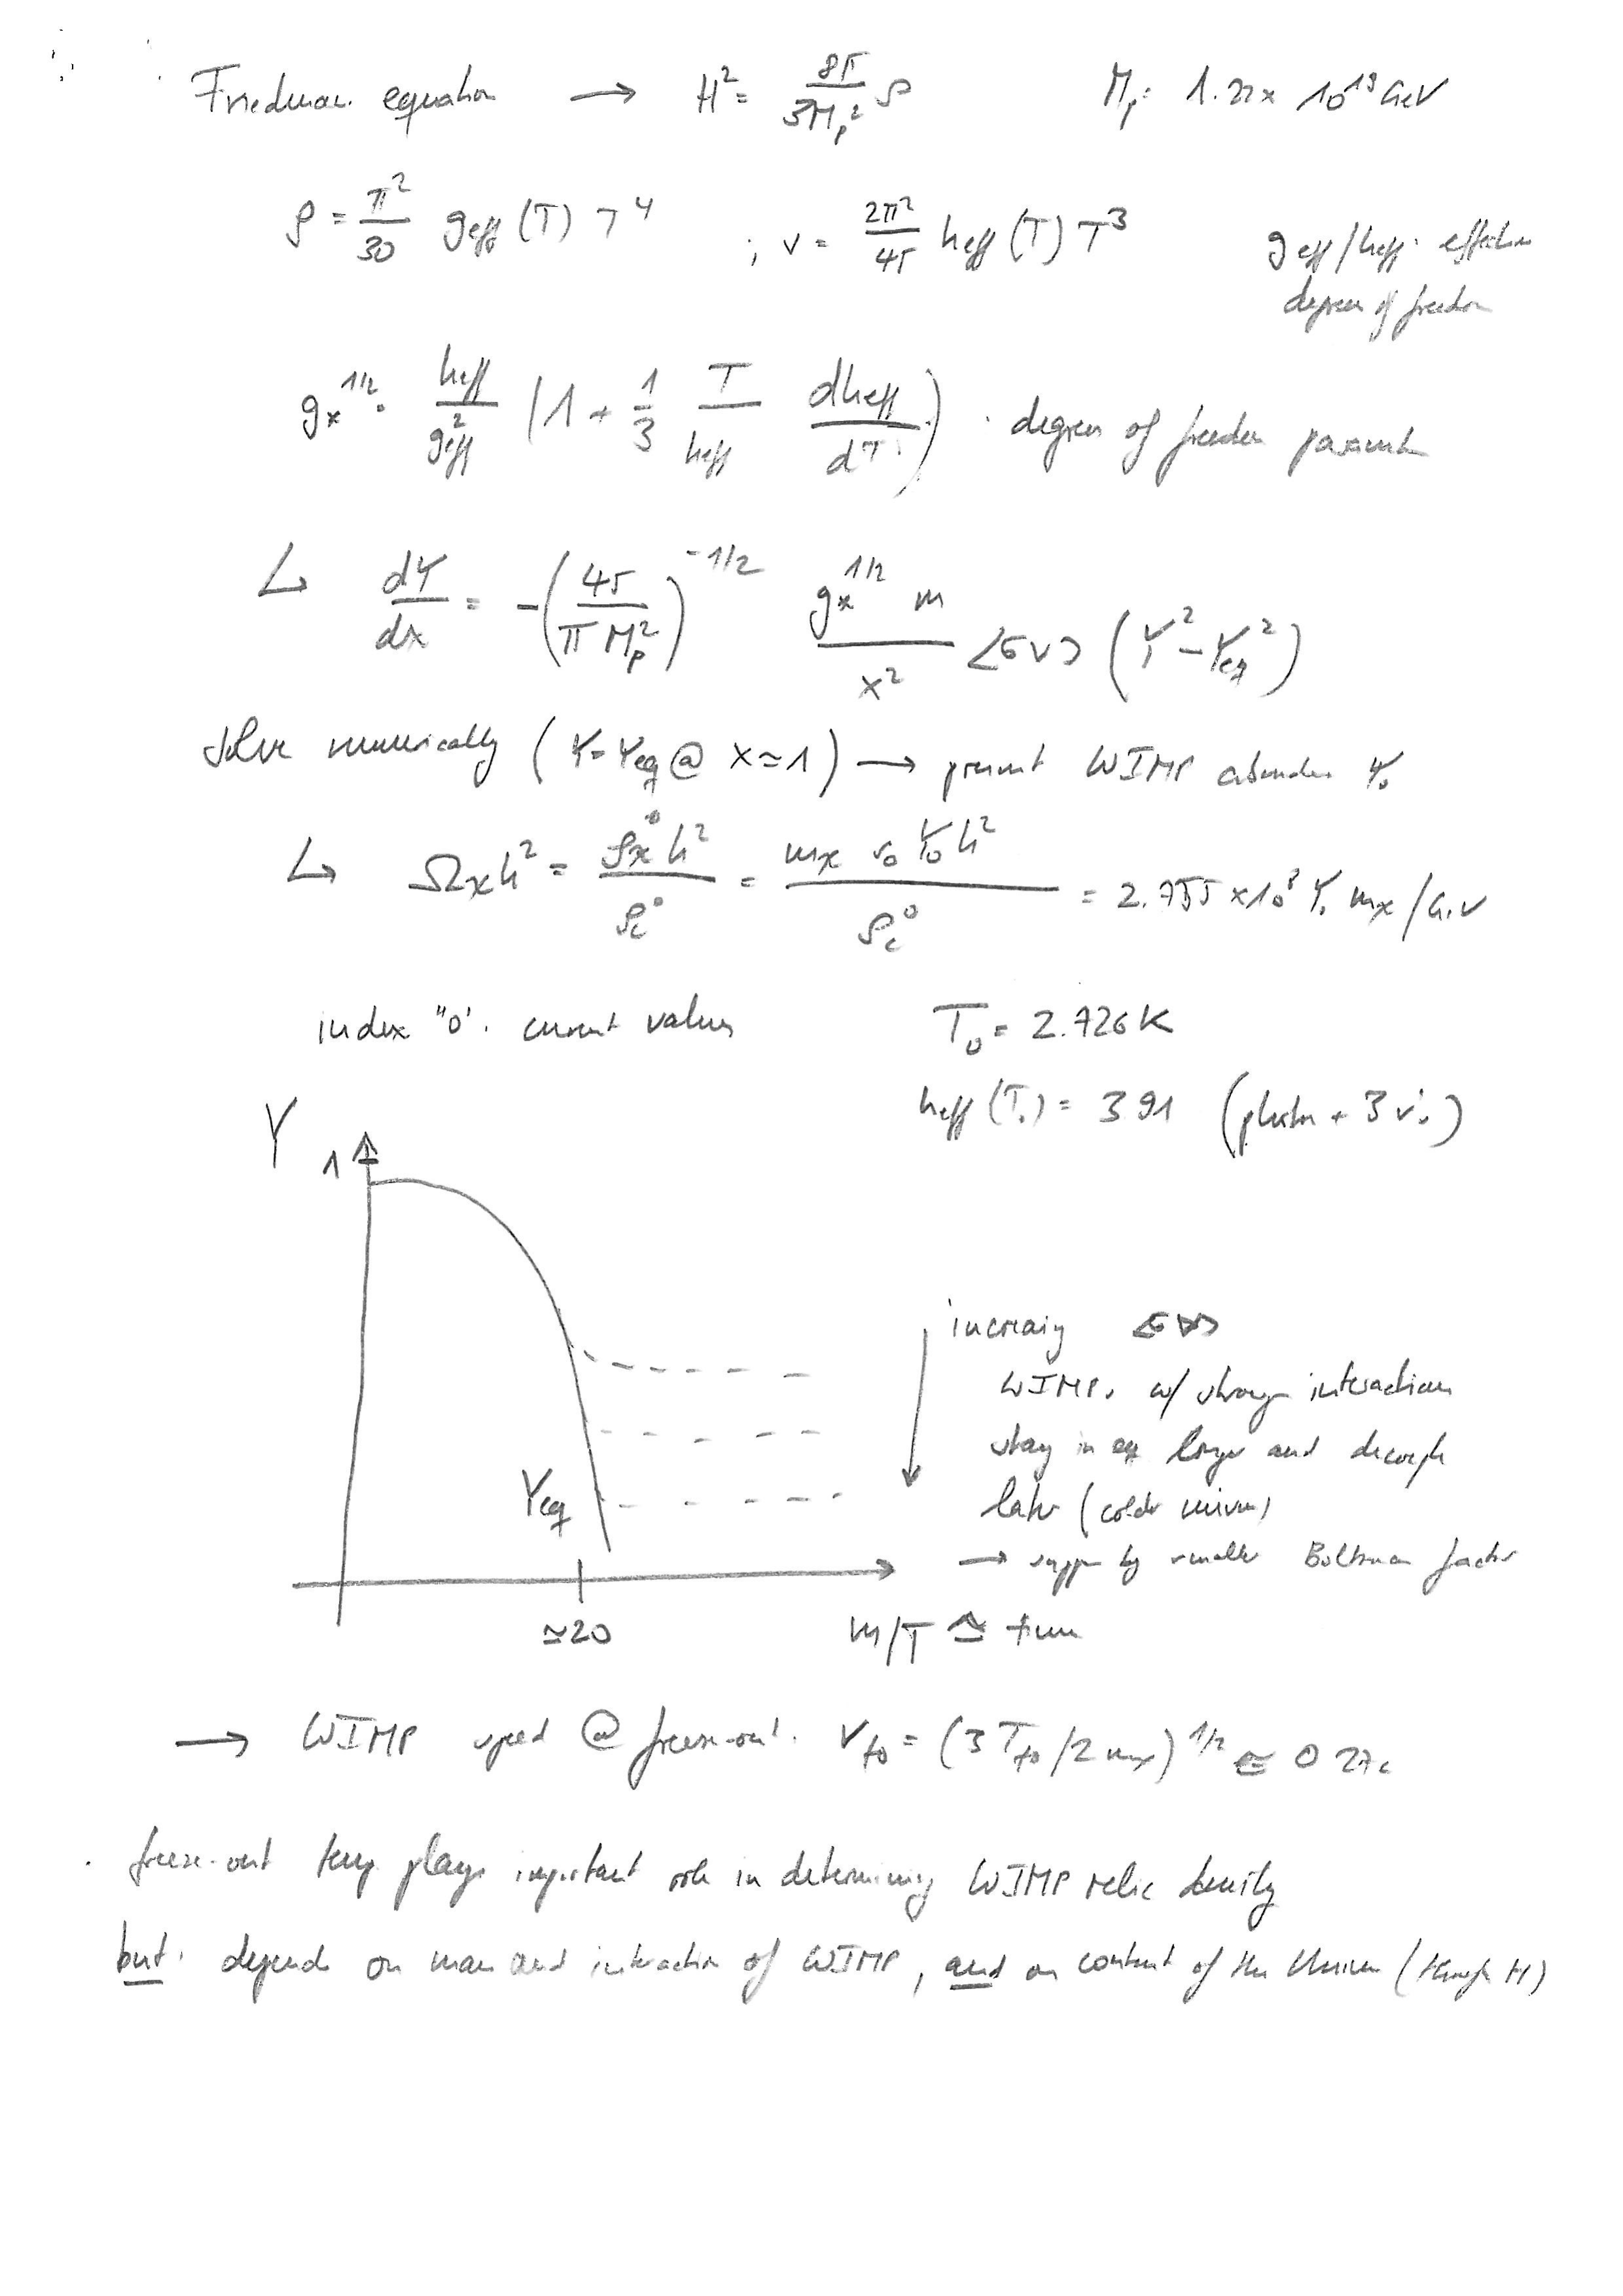 Friedman equation → H² = 8π/3Mp² ρ    Mp: 1.22 x 10¹⁹ GeV
ρ = π²/30 geff (T) T⁴    ; s = 2π²/45 heff (T) T³    geff/heff: effective
degrees of freedom
g*^1/2 : heff/g²eff (1 + 1/3 T/heff dheff/dT) : degrees of freedom parameter
↳ dY/dx = -(45/πMp²)^-1/2 g*^1/2 m/x² <σv> (Y² - Yeq²)
solve numerically (Y=Yeq @ x≃1) → present WIMP abundance Y₀
↳ Ωx h² = ρx⁰ h²/ρc⁰ = mx s₀ Y₀ h²/ρc⁰ = 2.755 x 10⁸ Y₀ mx/GeV
index "0": current values    T₀ = 2.726K
heff (T₀) = 3.91 (photon + 3 ν's)
Y
1
increasing <σv>
WIMPs w/ strong interactions
stay in eq longer and decouple
later (colder universe)
Yeq
→ suppr by smaller Boltzman factor
≃20    m/T ≙ time
→ WIMP speed @ freeze-out: vfo = (3Tfo/2mx)^1/2 ≅ 0.27c
· freeze-out temp plays important role in determining WIMP relic density
but: depends on mass and interaction of WIMP, and on content of the Universe (through H)